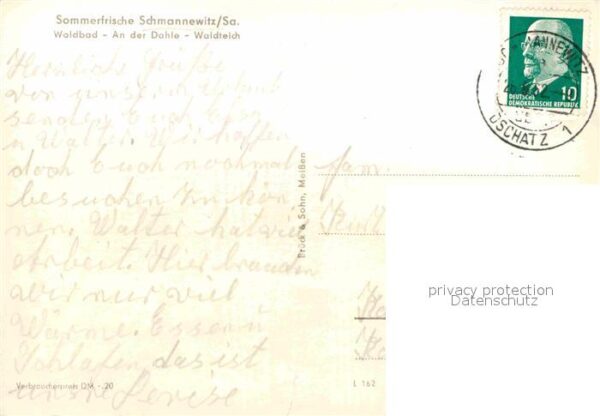 Sommerfrische Schmannewitz/Sa.
Waldbad - An der Dahle - Waldteich
Herzliche Grüße
von unserm Urlaub
senden Euch
u Walter. Wir hoffen
doch Euch nochmal
besuchen zu kön
nen. Walter hat viel
Arbeit. Hier brauchen
wir nur viel
Wärme. Essen u
Schlafen das ist
unsre Devise
Verbraucherpreis DM -.20
Brück & Sohn, Meißen
Fam.
L 162
SCHMANNEWITZ
OSCHATZ 1
10
DEUTSCHE
DEMOKRATISCHE REPUBLIK
privacy protection
Datenschutz